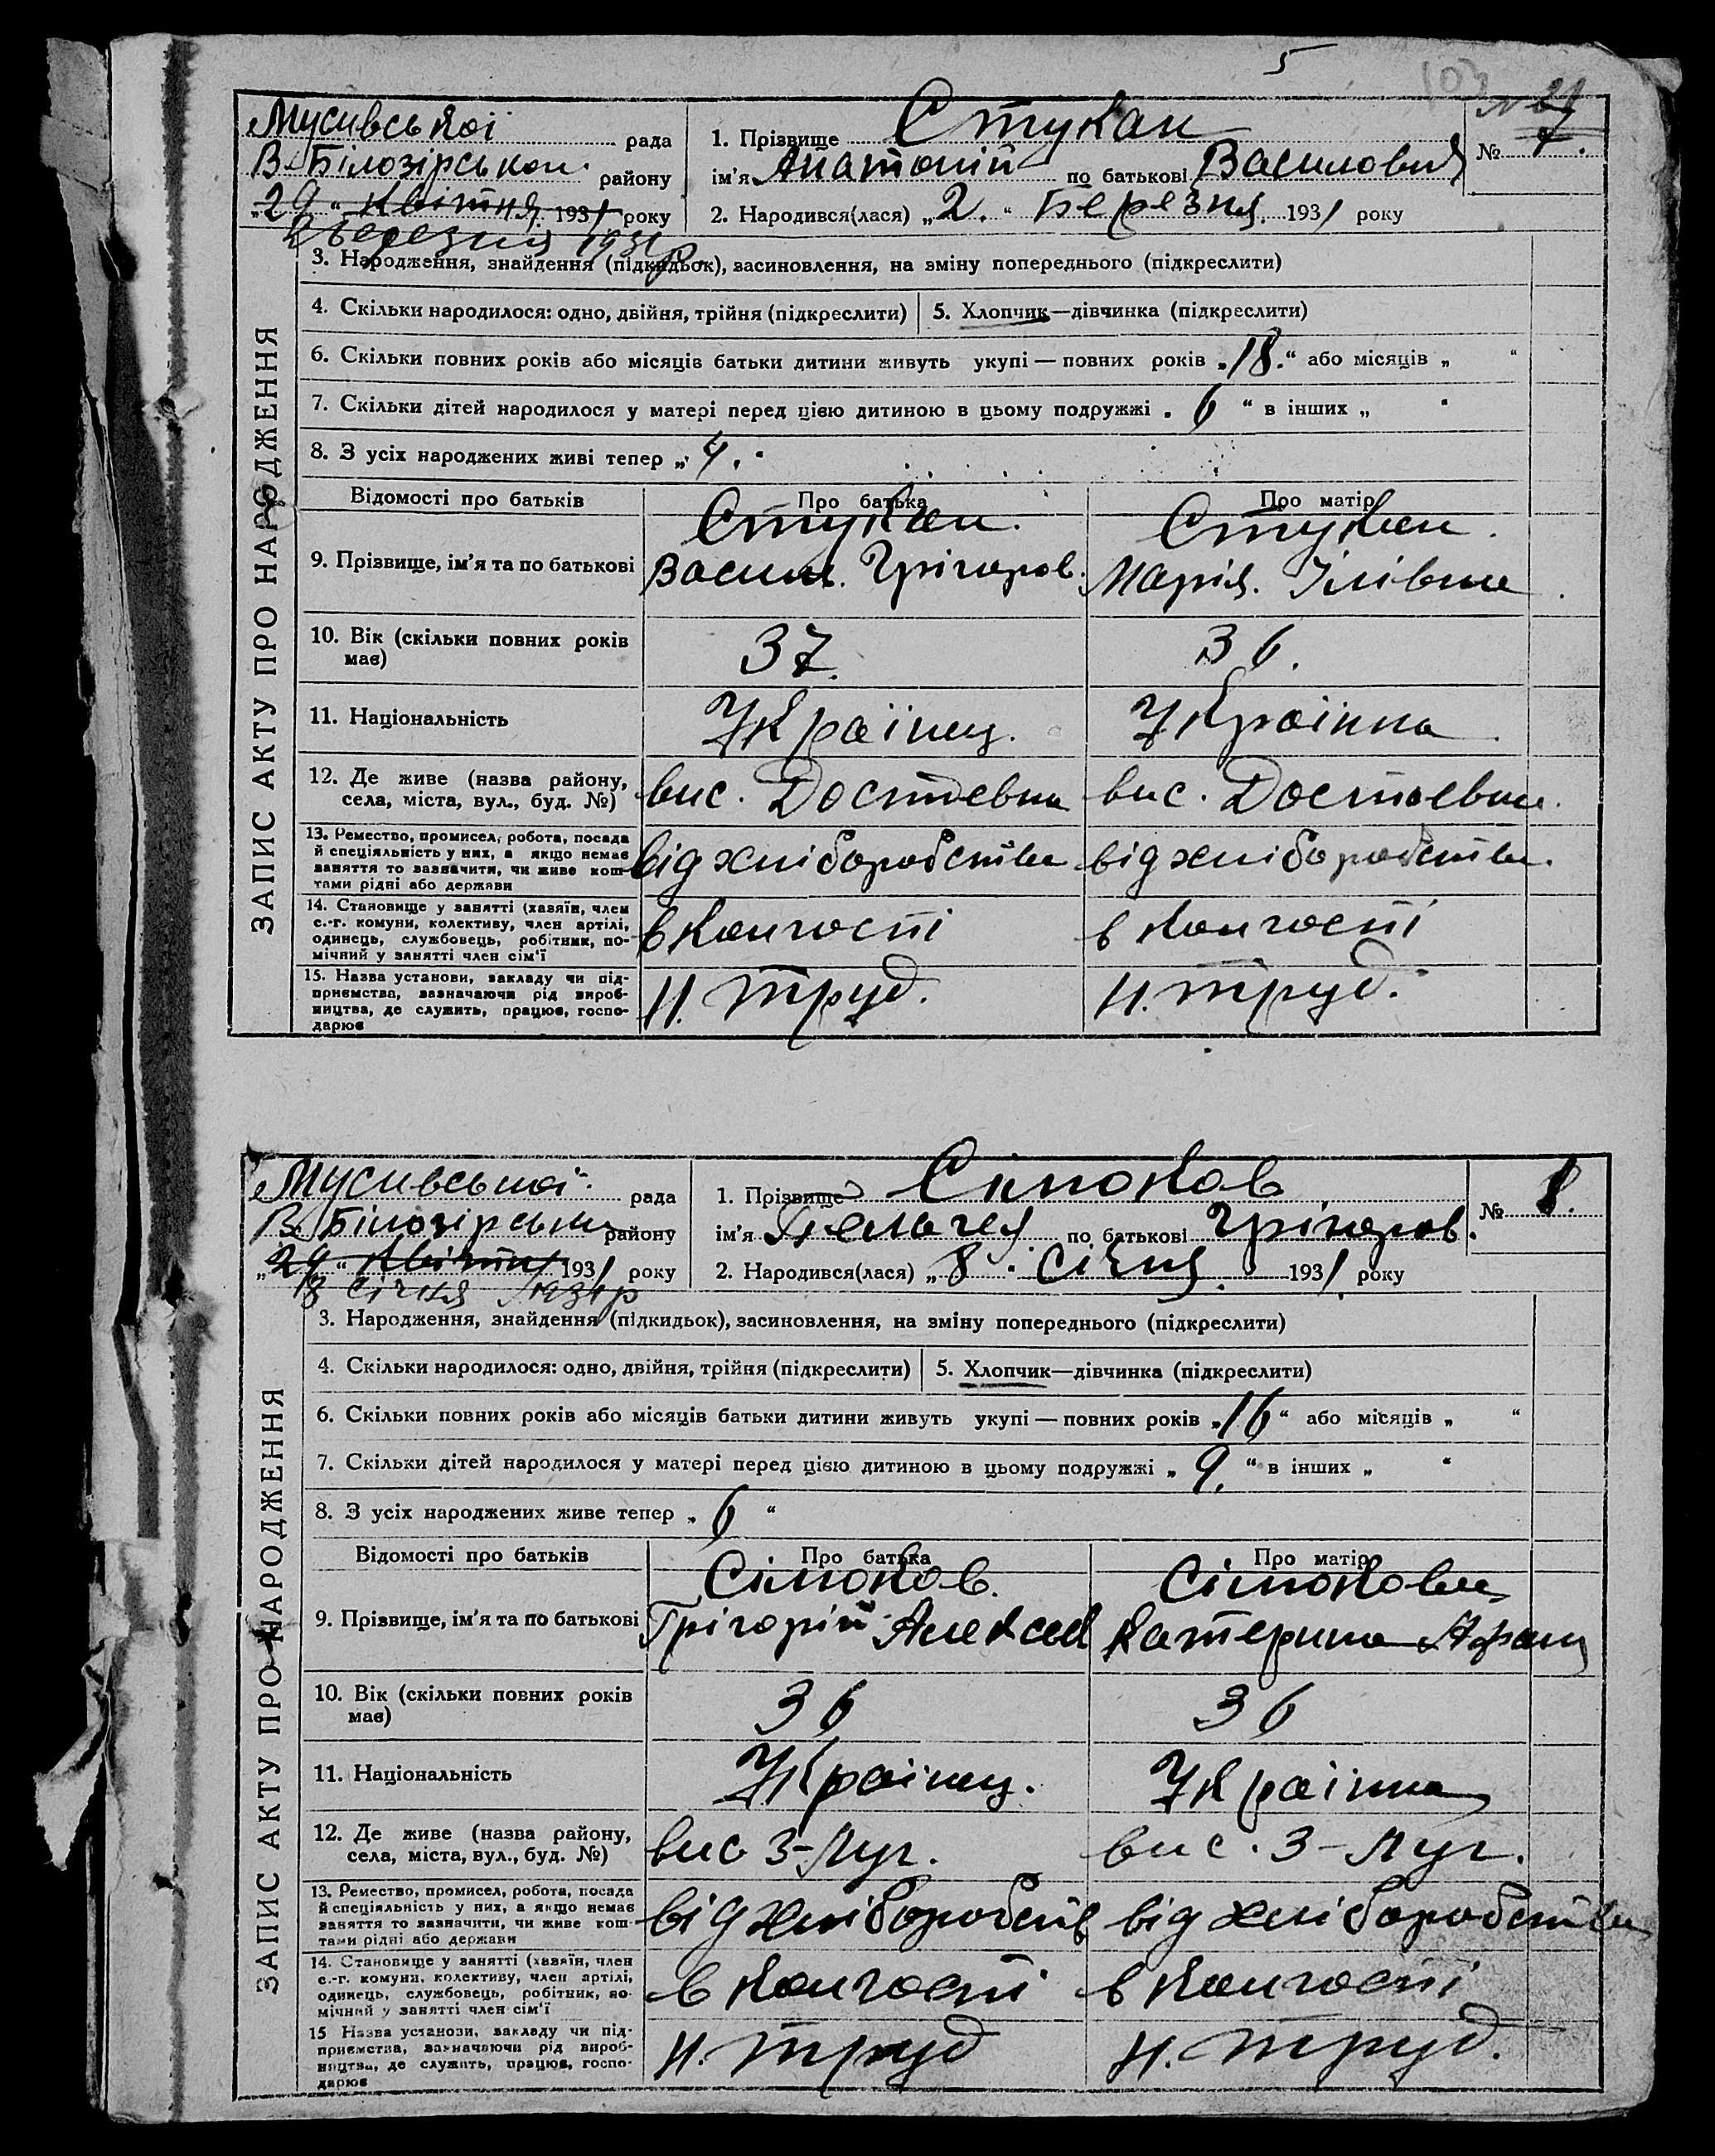 5
103
Мусивської рада
В-Білозірськой району
„29“ Квітня 1931 року
2 березня 1931 р.
1. Прізвище Стукан
ім'я Анатоній по батькові Василович
2. Народився(лася) „2.“ Березня. 1931 року
№ 7.
ЗАПИС АКТУ ПРО НАРОДЖЕННЯ
3. Народження, знайдення (підкидьок), засиновлення, на зміну попереднього (підкреслити)
4. Скільки народилося: одно, двійня, трійня (підкреслити) 5. Хлопчик—дівчинка (підкреслити)
6. Скільки повних років або місяців батьки дитини живуть укупі — повних років „18.“ або місяців „ “
7. Скільки дітей народилося у матері перед цією дитиною в цьому подружжі „6“ в інших „ “
8. З усіх народжених живі тепер „4.“
Відомості про батьків Про батька Про матір
9. Прізвище, ім'я та по батькові
Стукан. Стукан.
Васил. Грігоров. Марія. Ілівна
10. Вік (скільки повних років має) 37. 36.
11. Національність Україинец. Україинка
12. Де живе (назва району,
села, міста, вул., буд. №) вис. Достоевка вис. Достоевка.
13. Ремество, промисел, робота, посада
й спеціяльність у них, а якщо немає
заняття то зазначити, чи живе кош-
тами рідні або держави
від хліборобства від хліборобства.
14. Становище у занятті (хазяїн, член
с.-г. комуни, колективу, член артілі,
одинець, службовець, робітник, по-
мічний у занятті член сім'ї
в колгоспі в колгоспі
15. Назва установи, закладу чи під-
приємства, зазначаючи рід вироб-
ництва, де служить, працює, госпо-
дарює
Н. труд. Н. труд.
Мусивської рада
В-Білозірськ району
„29“ Квітня 1931 року
8 січня 1931 р
1. Прізвище Сімоков
ім'я по батькові Грігоров.
2. Народився(лася) „8“ Січня. 1931. року
№ 8.
ЗАПИС АКТУ ПРО НАРОДЖЕННЯ
3. Народження, знайдення (підкидьок), засиновлення, на зміну попереднього (підкреслити)
4. Скільки народилося: одно, двійня, трійня (підкреслити) 5. Хлопчик—дівчинка (підкреслити)
6. Скільки повних років або місяців батьки дитини живуть укупі — повних років „16“ або місяців „ “
7. Скільки дітей народилося у матері перед цією дитиною в цьому подружжі „9.“ в інших „ “
8. З усіх народжених живе тепер „6“
Відомості про батьків Про батька Про матір
9. Прізвище, ім'я та по батькові
Сімоков. Сімокова
Грігорій Алексей Катерина Афан
10. Вік (скільки повних років має) 36 36
11. Національність Україинец. Україинка
12. Де живе (назва району,
села, міста, вул., буд. №) вис 3-Луг. вис. 3-Луг.
13. Ремество, промисел, робота, посада
й спеціяльність у них, а якщо немає
заняття то зазначити, чи живе кош-
тами рідні або держави
від хліборобств від хліборобства
14. Становище у занятті (хазяїн, член
с.-г. комуни, колективу, член артілі,
одинець, службовець, робітник, по-
мічний у занятті член сім'ї
в колгоспі в колгоспі
15 Назва установи, закладу чи під-
приємства, зазначаючи рід вироб-
ництва, де служить, працює, госпо-
дарює
Н. труд Н. труд.